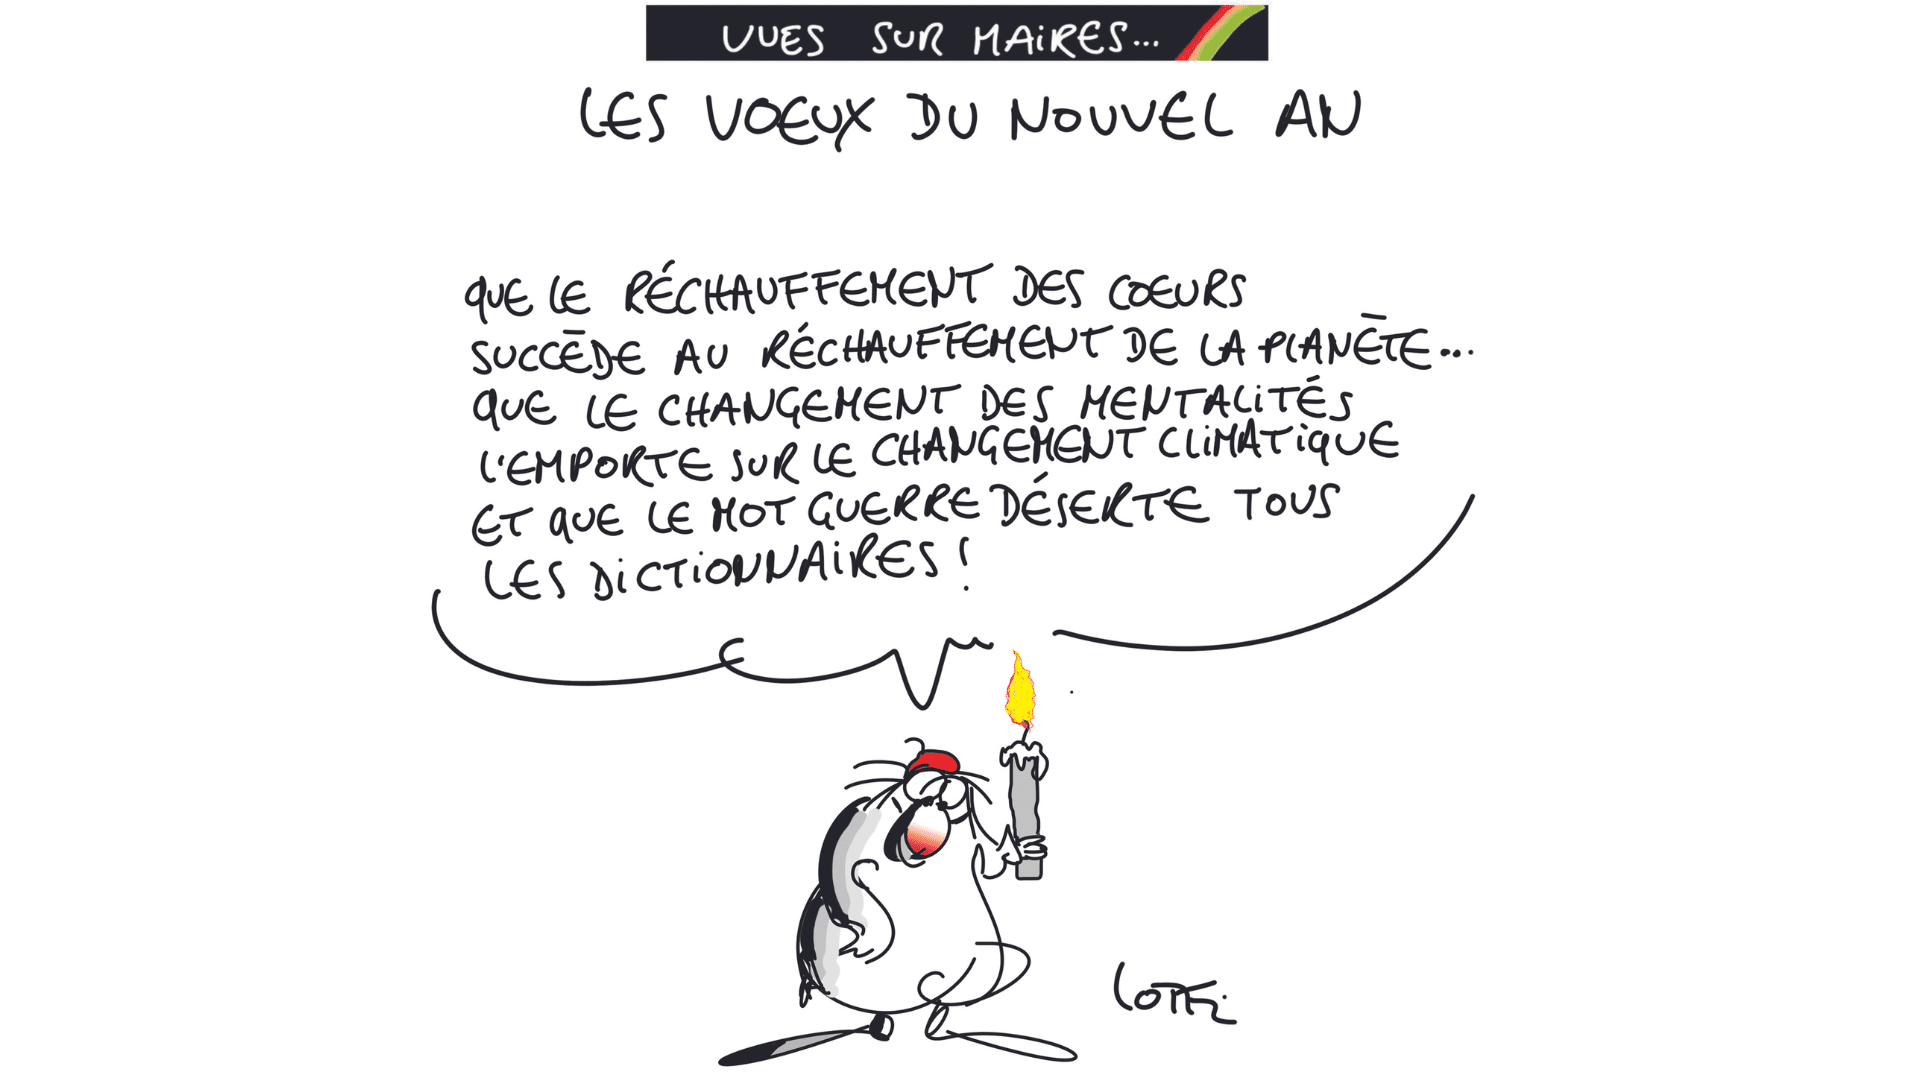 VUES SUR MAIRES...
LES VOEUX DU NOUVEL AN
QUE LE RÉCHAUFFEMENT DES COEURS
SUCCÈDE AU RÉCHAUFFEMENT DE LA PLANÈTE...
QUE LE CHANGEMENT DES MENTALITÉS
L'EMPORTE SUR LE CHANGEMENT CLIMATIQUE
ET QUE LE MOT GUERRE DÉSERTE TOUS
LES DICTIONNAIRES !